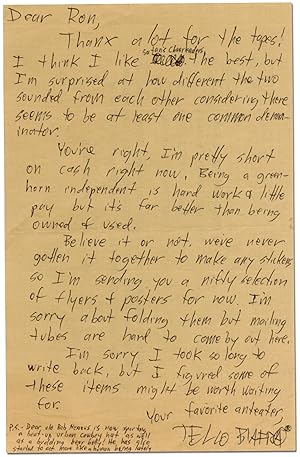 Dear Ron,
Thanx a lot for the tapes!
I think I like Satanic Cheerleaders the best, but
I'm surprised at how different the two
sounded from each other considering there
seems to be at least one common denom-
inator.
You're right, I'm pretty short
on cash right now. Being a green-
horn independent is hard work & little
pay but it's far better than being
owned & used.
Believe it or not, we've never
gotten it together to make any stickers
so I'm sending you a nifty selection
of flyers & posters for now. I'm
sorry about folding them but mailing
tubes are hard to come by out here.
I'm sorry I took so long to
write back, but I figured some of
these items might be worth waiting
for.
Your favorite anteater,
JELLO BIAFRA
P.S.- Dear ole Bob is now sporting
a beat-up urban cowboy hat as well
as a budding beer belly. He has also
started to act more like a human being lately